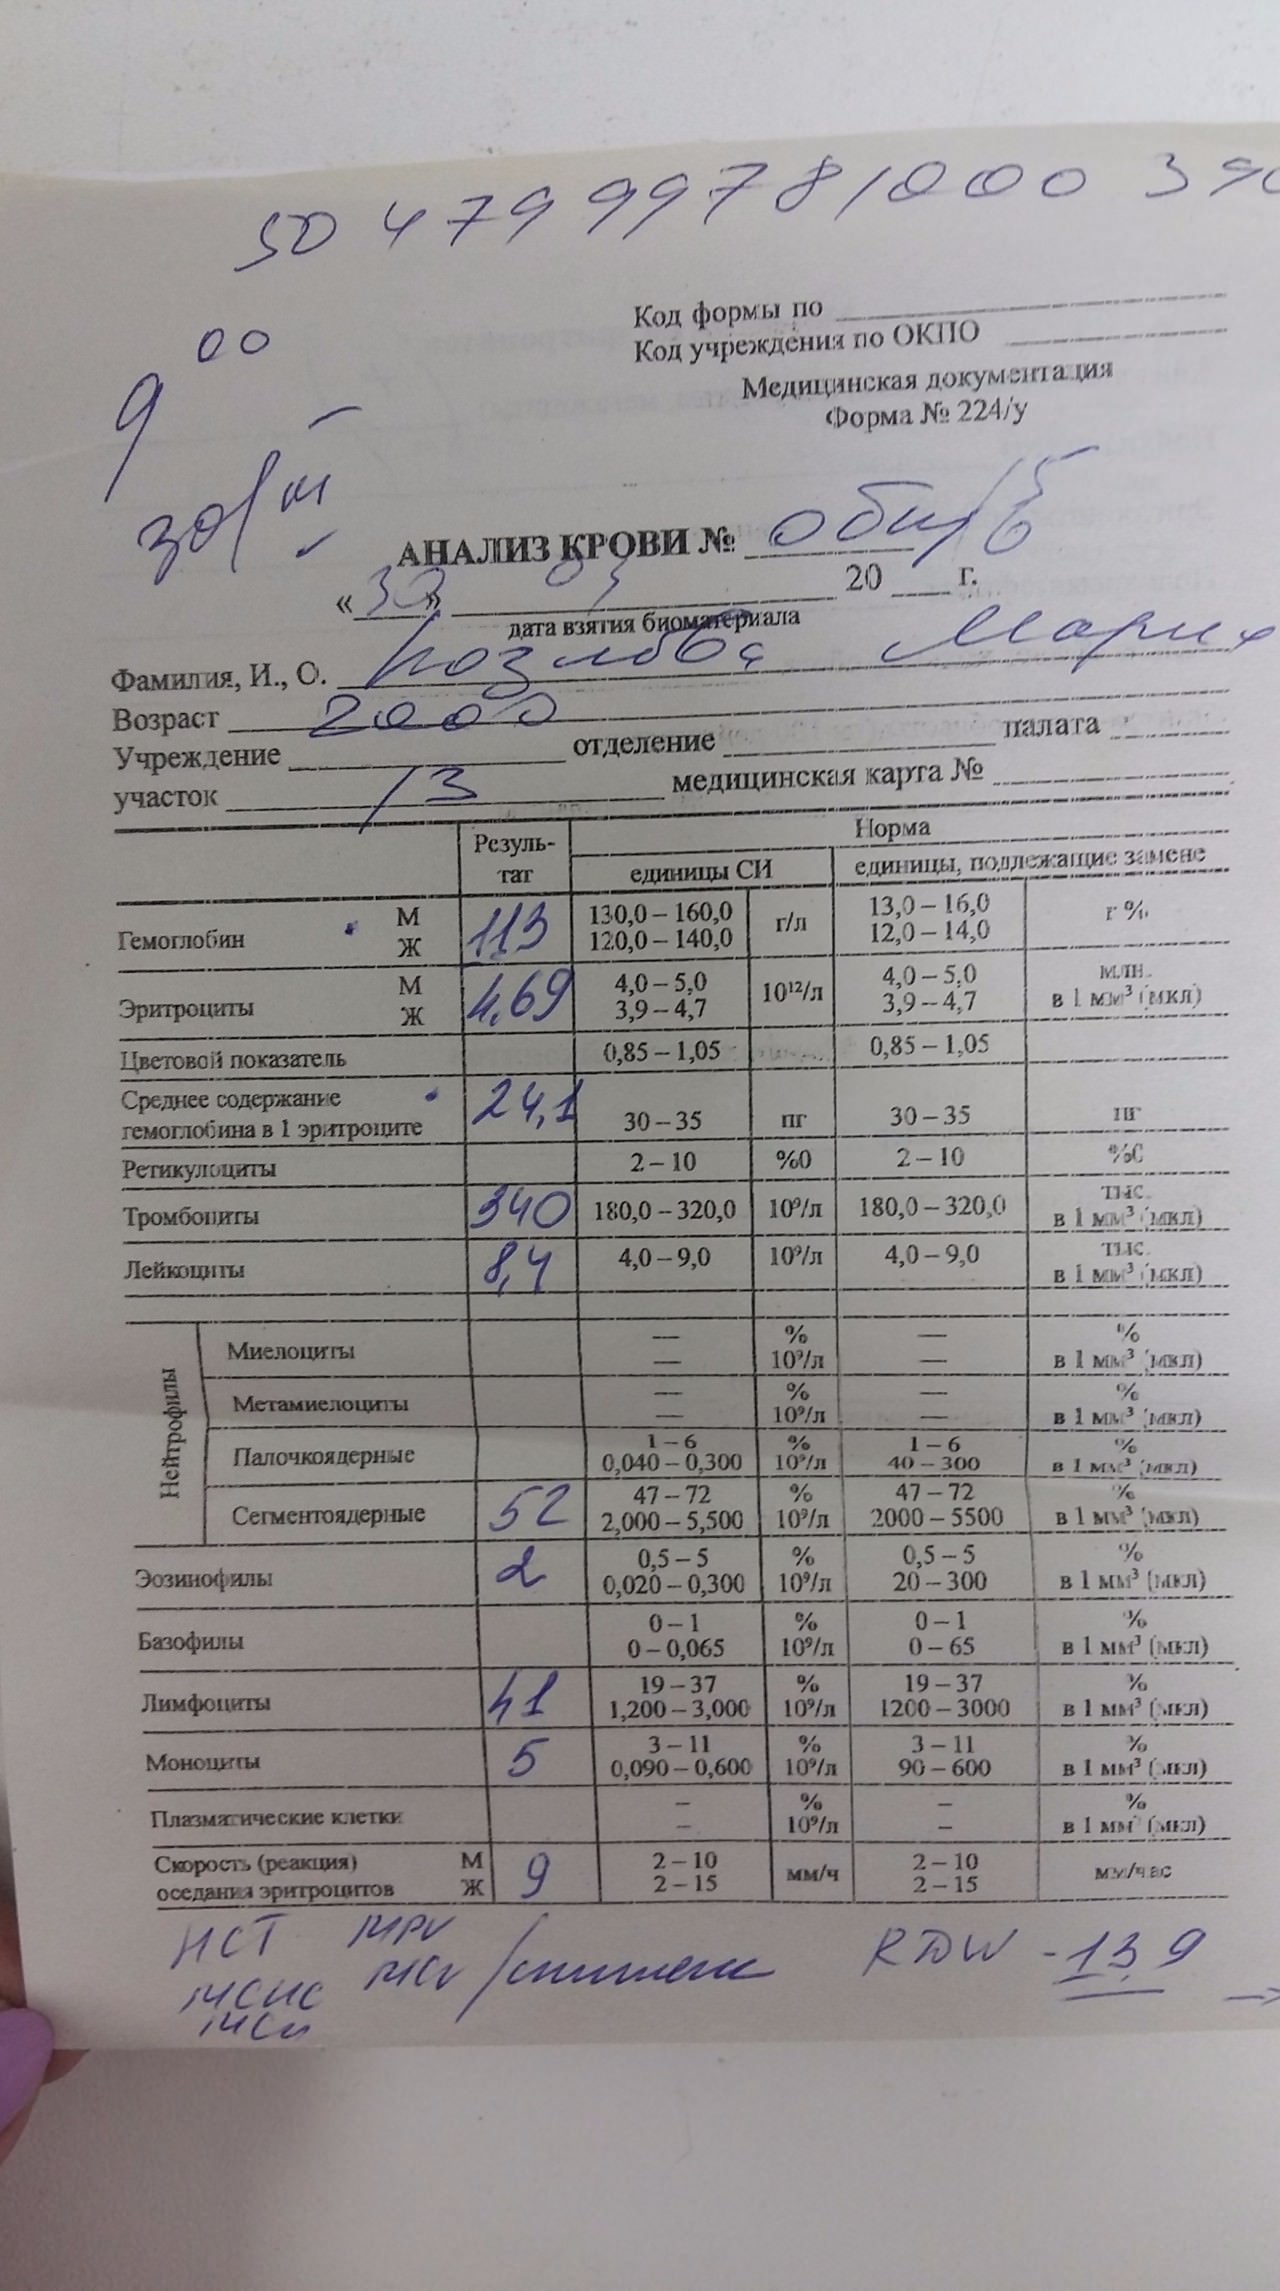 50 4799978/000 390
9 00
Код формы по
Код учреждения по ОКПО
Медицинская документация
Форма № 224/у
АНАЛИЗ КРОВИ №
«30» 20 г.
дата взятия биоматериала
Фамилия, И., О. Козлова Мария
Возраст 2000
Учреждение отделение палата
участок 13 медицинская карта №
Резуль-тат Норма
единицы СИ единицы, подлежащие замене
Гемоглобин М Ж 113 130,0 – 160,0 120,0 – 140,0 г/л 13,0 – 16,0 12,0 – 14,0 г %
Эритроциты М Ж 4,69 4,0 – 5,0 3,9 – 4,7 10¹²/л 4,0 – 5,0 3,9 – 4,7 млн. в 1 мм³ (мкл)
Цветовой показатель 0,85 – 1,05 0,85 – 1,05
Среднее содержание гемоглобина в 1 эритроците 24,1 30 – 35 пг 30 – 35 пг
Ретикулоциты 2 – 10 %0 2 – 10 %0
Тромбоциты 340 180,0 – 320,0 10⁹/л 180,0 – 320,0 тыс. в 1 мм³ (мкл)
Лейкоциты 8,4 4,0 – 9,0 10⁹/л 4,0 – 9,0 тыс. в 1 мм³ (мкл)
Нейтрофилы
Миелоциты — — % 10⁹/л — — % в 1 мм³ (мкл)
Метамиелоциты — — % 10⁹/л — — % в 1 мм³ (мкл)
Палочкоядерные 1 – 6 0,040 – 0,300 % 10⁹/л 1 – 6 40 – 300 % в 1 мм³ (мкл)
Сегментоядерные 52 47 – 72 2,000 – 5,500 % 10⁹/л 47 – 72 2000 – 5500 % в 1 мм³ (мкл)
Эозинофилы 2 0,5 – 5 0,020 – 0,300 % 10⁹/л 0,5 – 5 20 – 300 % в 1 мм³ (мкл)
Базофилы 0 – 1 0 – 0,065 % 10⁹/л 0 – 1 0 – 65 % в 1 мм³ (мкл)
Лимфоциты 41 19 – 37 1,200 – 3,000 % 10⁹/л 19 – 37 1200 – 3000 % в 1 мм³ (мкл)
Моноциты 5 3 – 11 0,090 – 0,600 % 10⁹/л 3 – 11 90 – 600 % в 1 мм³ (мкл)
Плазматические клетки – – % 10⁹/л – – % в 1 мм³ (мкл)
Скорость (реакция) оседания эритроцитов М Ж 9 2 – 10 2 – 15 мм/ч 2 – 10 2 – 15 мм/час
HCT MPV RDW - 13,9
MCHC MCV